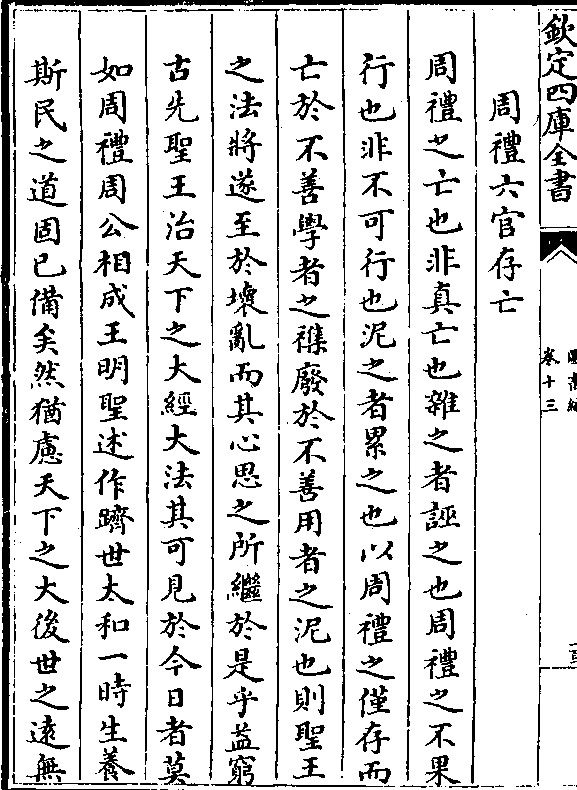 欽定四庫全書
圖書編
卷十三
周禮六官存亡
周禮之亡也非真亡也雜之者誣之也周禮之不果
行也非不可行也泥之者累之也以周禮之僅存而
亡於不善學者之襍廢於不善用者之泥也則聖王
之法將遂至於壞亂而其心思之所繼於是乎益窮
古先聖王治天下之大經大法其可見於今日者莫
如周禮周公相成王明聖述作躋世太和一時生養
斯民之道固已備矣然猶慮天下之大後世之遠無